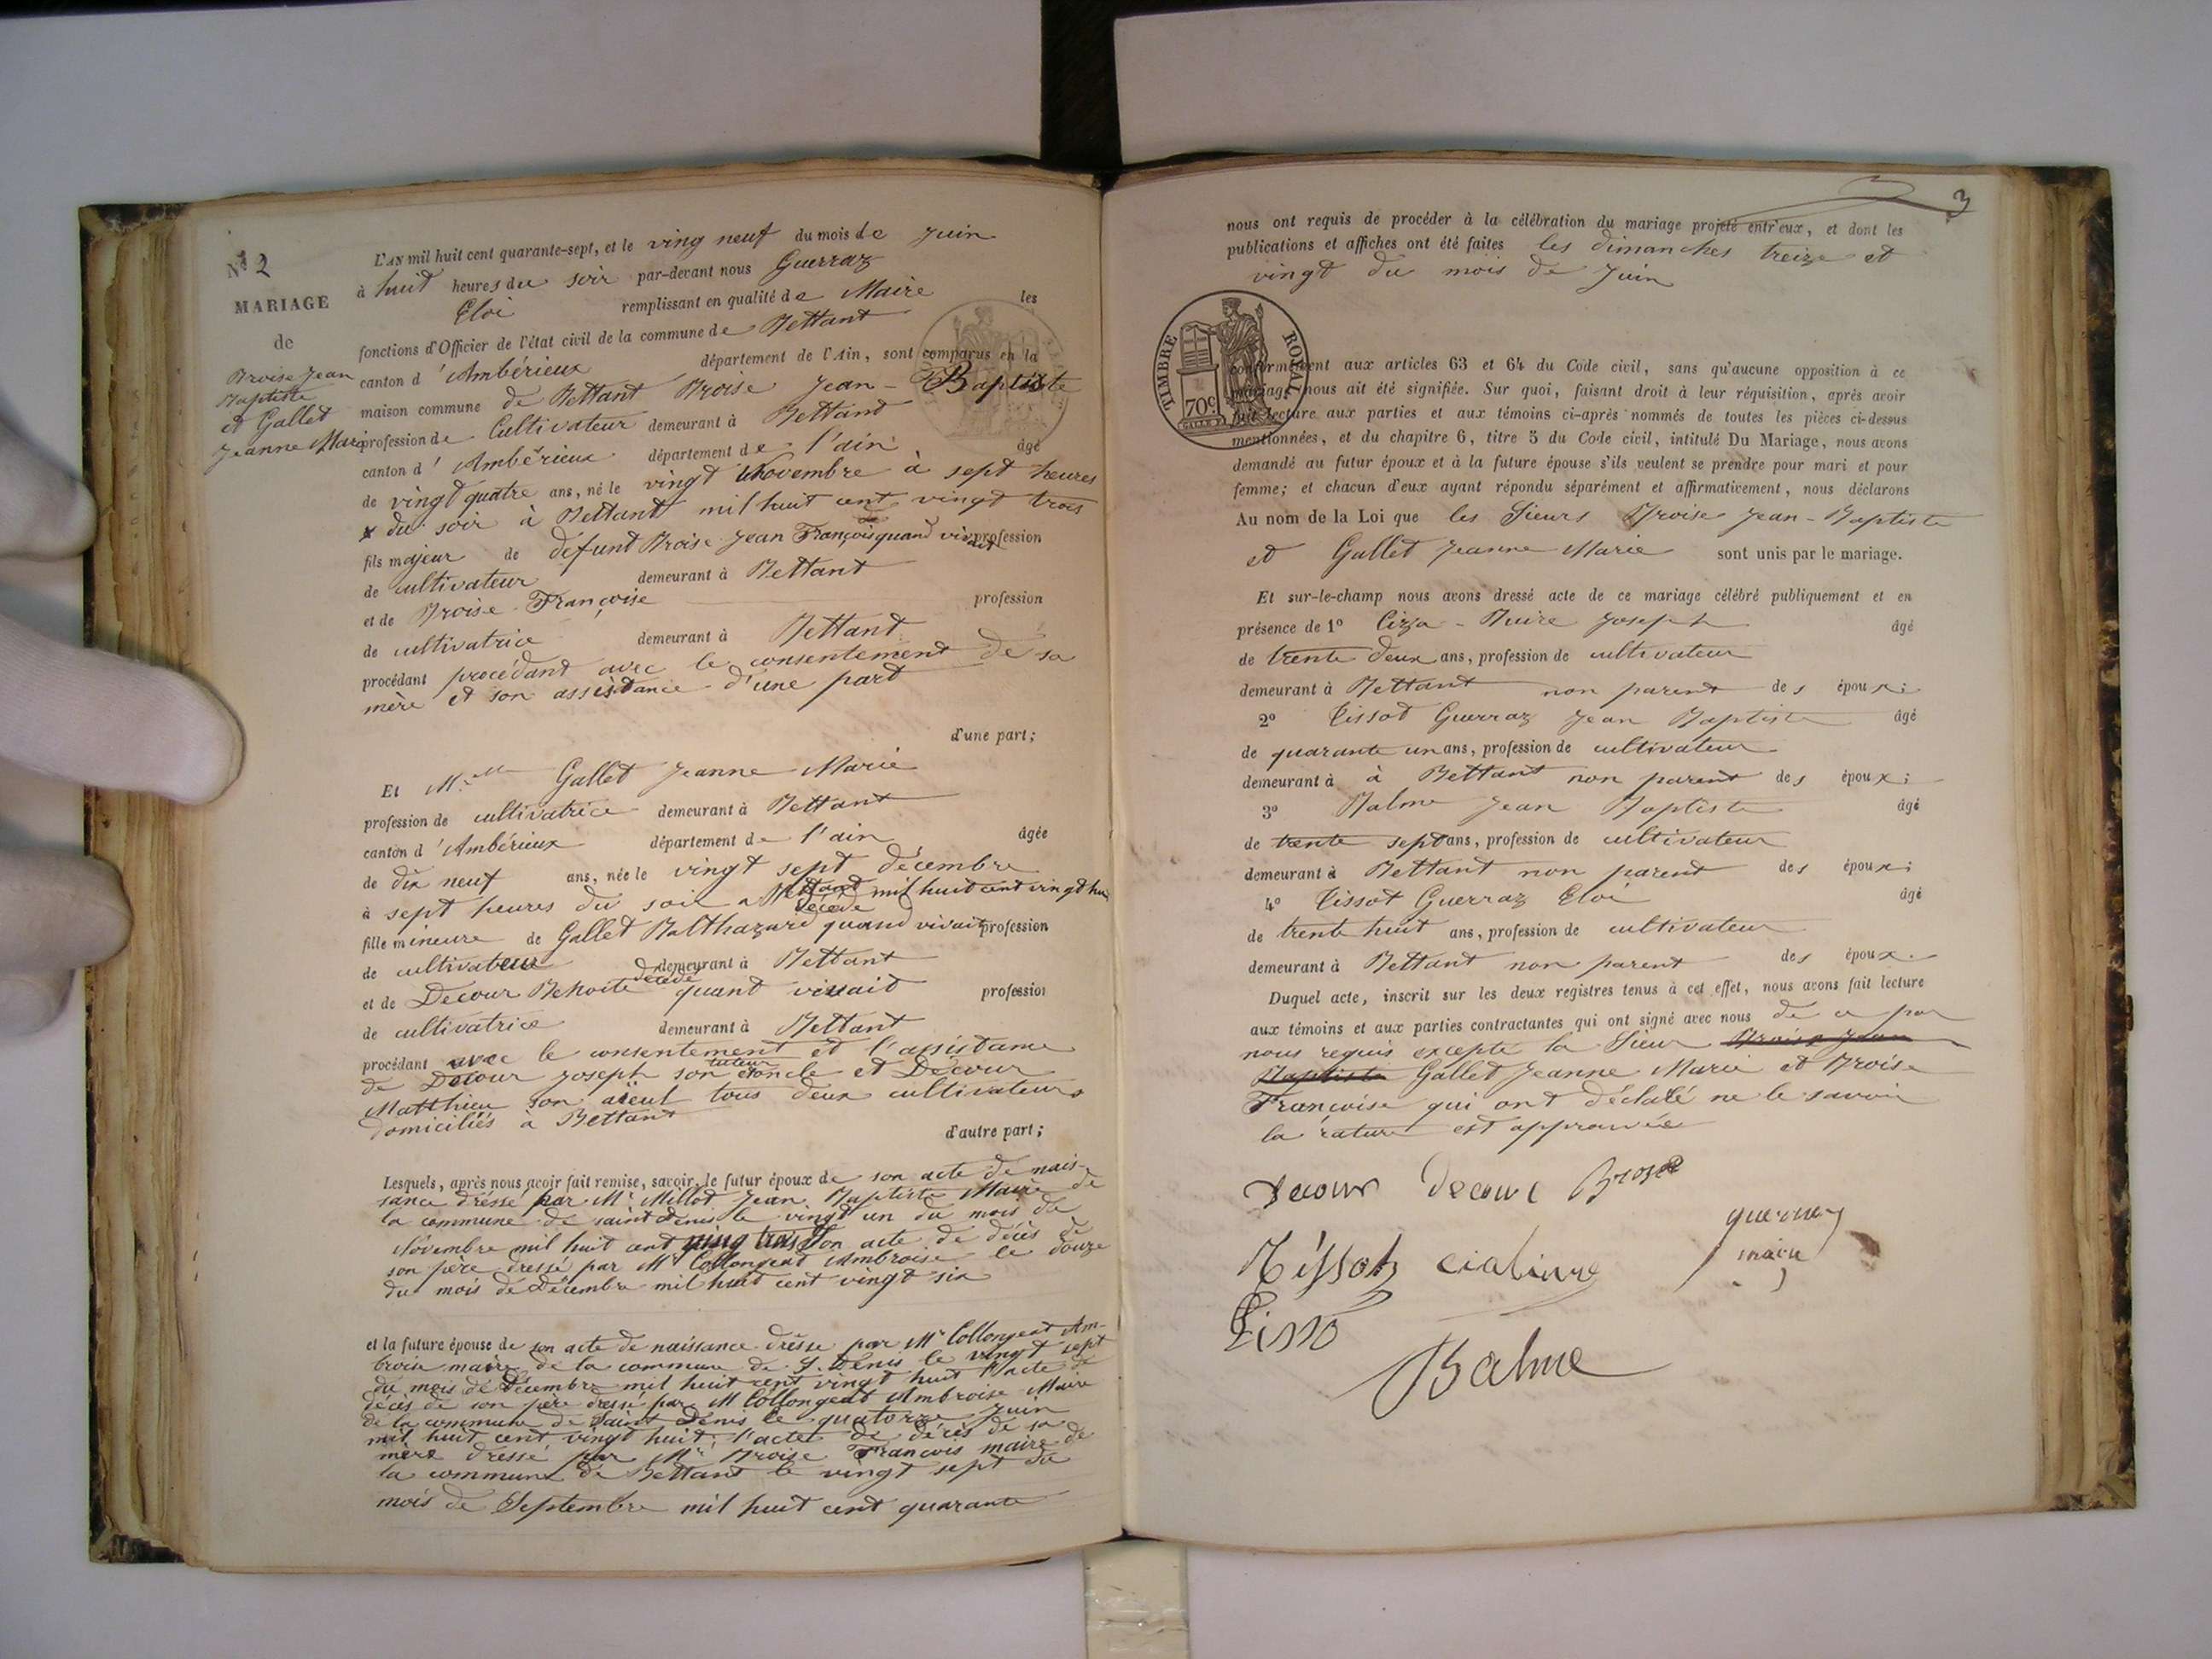 N° 2
MARIAGE
de
Broise Jean
Baptiste
et Gallet
Jeanne Marie
L'AN mil huit cent quarante-sept, et le ving neuf du mois de Juin
à huit heures du soir par-devant nous Guerraz
Eloi remplissant en qualité de Maire les
fonctions d'Officier de l'état civil de la commune de Bettant
canton d'Ambérieux département de l'Ain, sont comparus en la
maison commune de Bettant Broise Jean-Baptiste
profession de Cultivateur demeurant à Bettant
canton d'Ambérieux département de l'ain âgé
de vingt quatre ans, né le vingt Novembre à sept heures
du soir à Bettant mil huit cent vingt trois
fils majeur de defunt Broise Jean François quand vivait profession
de cultivateur demeurant à Bettant
et de Broise Françoise profession
de cultivatrice demeurant à Bettant
procédant procédant avec le consentement de sa
mère et son assistance d'une part
d'une part;
Et M.elle Gallet Jeanne Marie
profession de cultivatrice demeurant à Bettant
canton d'Ambérieux département de l'ain âgée
de dix neuf ans, née le vingt sept décembre
à sept heures du soir a Bettant mil huit cent vingt hui
décédé
fille mineure de Gallet Balthazard quand vivait profession
de cultivateur demeurant à Bettant
décédé
et de Decour Benoite quant vivait profession
de cultivatrice demeurant à Bettant
procédant avec le consentement et l'assistance
tuteur
de Decour Joseph son oncle et Décour
Matthieu son aïeul tous deux cultivateurs
domiciliés à Bettant
d'autre part;
Lesquels, après nous avoir fait remise, savoir, le futur époux de son acte de nais-
sance dressé par Mr Millot Jean Baptiste Maire de
la commune de saint denis le vingt un du mois de
Novembre mil huit cent ving trois Son acte de décès de
son père dressé par Mr Collongeat Ambroise le douze
du mois de Décembre mil huit cent vingt six
et la future épouse de son acte de naissance dresse par Mr Collongeat Am-
broise maire de la commune de St. Denis le vingt sept
du mois de Décembre mil huit cent vingt huit l'acte de
décès de son père dressé par M Collongeat Ambroise Maire
de la commune de Saint Denis le quatorze Juin
mil huit cent vingt huit; l'acte de décès de sa
mère dressé par Mr Broise François maire de
la commune de Bettant le vingt sept du
mois de Septembre mil huit cent quarante
3
nous ont requis de procéder à la célébration du mariage projeté entr'eux, et dont les
publications et affiches ont été faites les dimanches treize et
vingt du mois de Juin
TIMBRE ROYAL
70c
conformément aux articles 63 et 64 du Code civil, sans qu'aucune opposition à ce
mariage nous ait été signifiée. Sur quoi, faisant droit à leur réquisition, après avoir
fait lecture aux parties et aux témoins ci-après nommés de toutes les pièces ci-dessus
mentionnées, et du chapitre 6, titre 5 du Code civil, intitulé Du Mariage, nous avons
demandé au futur époux et à la future épouse s'ils veulent se prendre pour mari et pour
femme; et chacun d'eux ayant répondu séparément et affirmativement, nous déclarons
Au nom de la Loi que les Sieurs Broise Jean-Baptiste
et Gallet Jeanne Marie sont unis par le mariage.
Et sur-le-champ nous avons dressé acte de ce mariage célébré publiquement et en
présence de 1° Joseph âgé
de trente deux ans, profession de cultivateur
demeurant à Bettant non parent des époux;
2° Tissot Guerraz Jean Baptiste âgé
de quarante un ans, profession de cultivateur
demeurant à à Bettant non parent des époux;
3° Balme Jean Baptiste âgé
de trente sept ans, profession de cultivateur
demeurant à Bettant non parent des époux;
4° Tissot Guerraz Eloi âgé
de trente huit ans, profession de cultivateur
demeurant à Bettant non parent des époux.
Duquel acte, inscrit sur les deux registres tenus à cet effet, nous avons fait lecture
aux témoins et aux parties contractantes qui ont signé avec nous de ce par
nous requis excepté la Sieur Broise Jean
Baptiste Gallet Jeanne Marie et Broise
Françoise qui ont déclaré ne le savoir
la rature est approuvée
Decour Decour Broise
maire
Tissot
Tisso
Balme